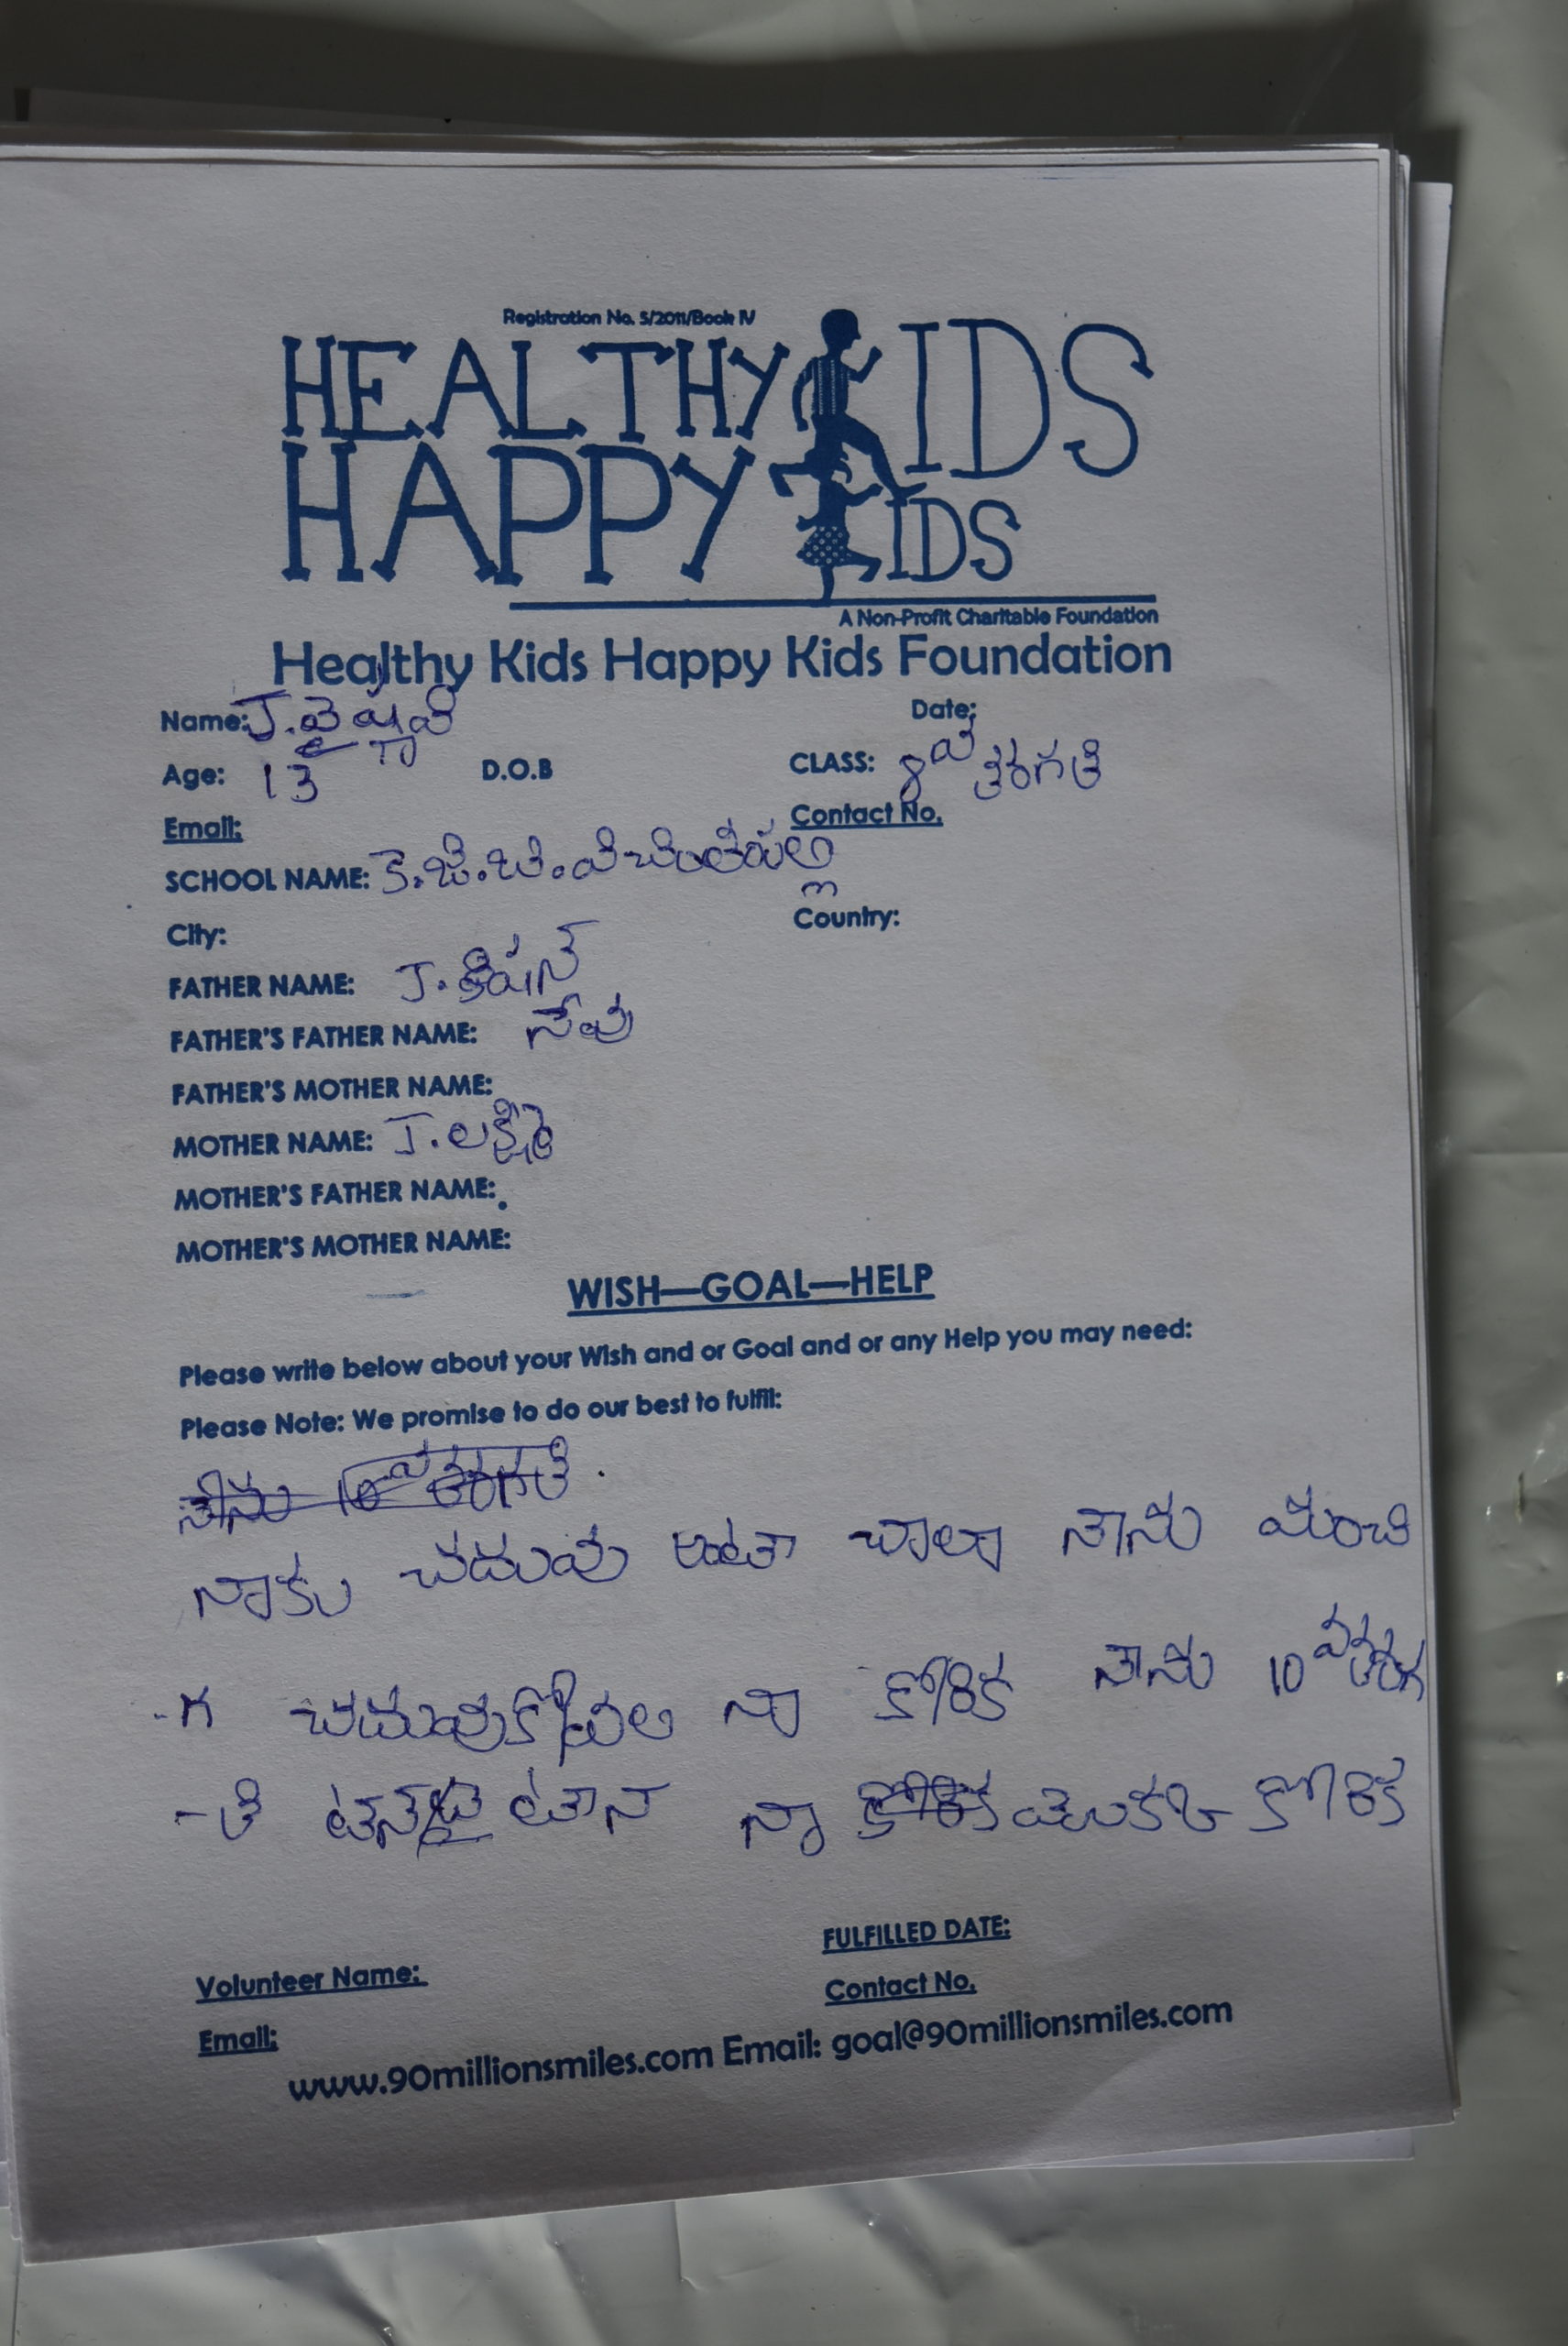 Registration No. 5/2011/Book IV
HEALTHY KIDS
HAPPY KIDS
A Non-Profit Charitable Foundation
Healthy Kids Happy Kids Foundation
Name: J.వైష్ణవి Date:
Age: 13 D.O.B CLASS: 8వ తరగతి
Email: Contact No.
SCHOOL NAME: కె.జి.బి.వి చింతపల్లి
City: Country:
FATHER NAME: J.కిషన్
FATHER'S FATHER NAME: సేవు
FATHER'S MOTHER NAME:
MOTHER NAME: J.లక్ష్మి
MOTHER'S FATHER NAME:
MOTHER'S MOTHER NAME:
WISH—GOAL—HELP
Please write below about your Wish and or Goal and or any Help you may need:
Please Note: We promise to do our best to fulfil:
నాకు చదువు అంటా చాలా నాను మంచి
-గ చదువుకోవల నా కోరిక నాను 10వ తరగ
-తి నా కోరిక
FULFILLED DATE:
Volunteer Name: Contact No.
Email:
www.90millionsmiles.com Email: goal@90millionsmiles.com